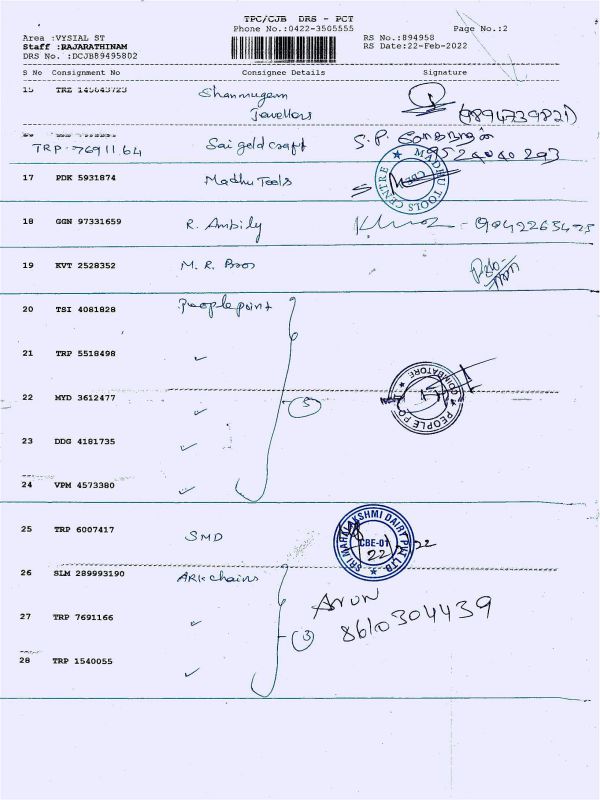 TPC/CJB DRS - PCT
Phone No.:0422-3505555
Page No.:2
Area :VYSIAL ST
RS No.:894958
Staff :RAJARATHINAM
RS Date:22-Feb-2022
DRS No. :DCJB89495802
S No Consignment No Consignee Details Signature
15 TRZ 145643723 Shanmugam
Jewellers (9894739821)
TRP-7691164 Sai gold craft S.P.
9524040293
17 PDK 5931874 Madhu Tools MADHU TOOLS CENTRE
18 GGN 97331659 R. Ambily
19 KVT 2528352 M. R. Bros
20 TSI 4081828 People point
21 TRP 5518498 ✓
22 MYD 3612477 ✓ 5 PEOPLE PO COIMBATORE
23 DDG 4181735 ✓
24 VPM 4573380 ✓
25 TRP 6007417 SMD SRI MAHALAKSHMI DAIRY P.W. LTD CBE-01 22 22
26 SLM 289993190 ARK chains
Arun
27 TRP 7691166 ✓ 3 8610304439
28 TRP 1540055 ✓